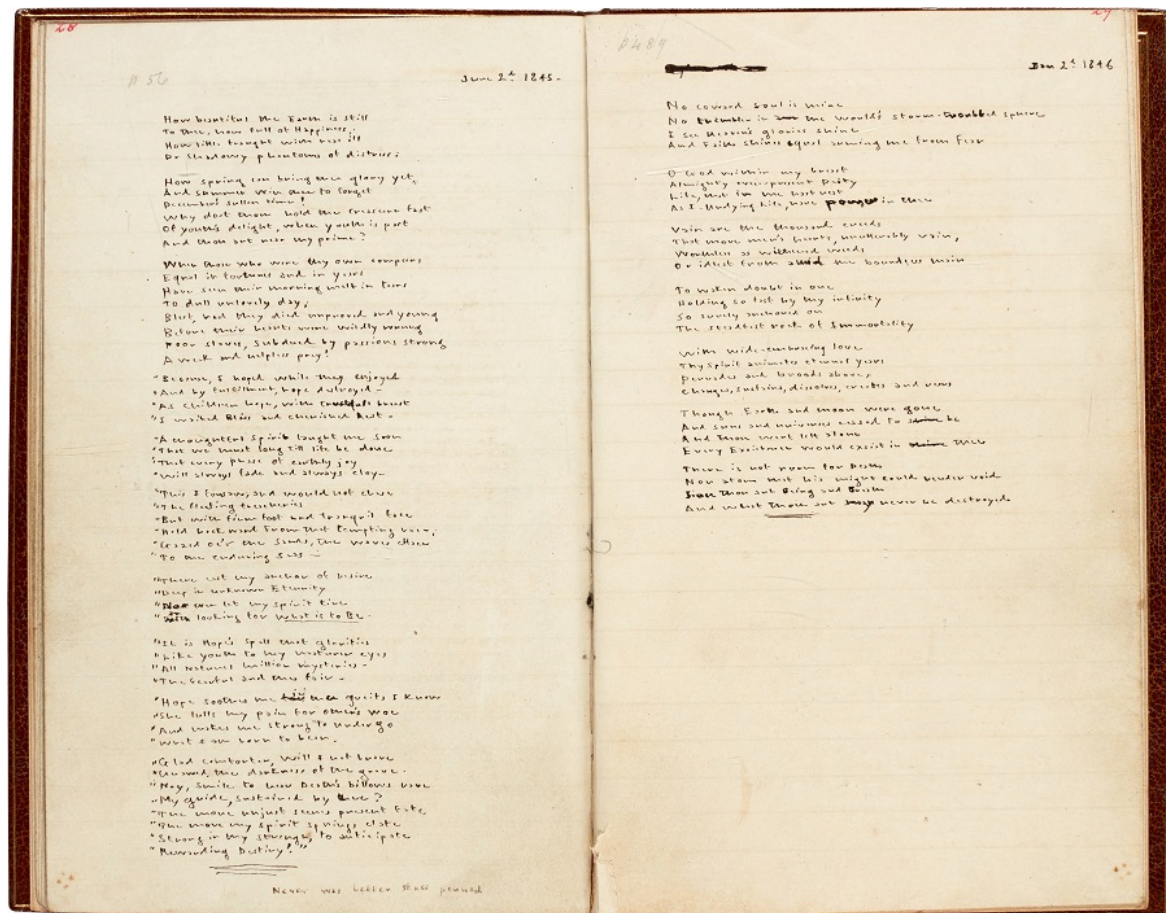 28
p 56
June 2d. 1845-
How beautiful the Earth is still
To thee, how full of Happiness;
How little fraught with real ill
Or shadowy phantoms of distress;
How spring can bring thee glory yet,
And Summer win thee to forget
December's sullen time!
Why dost thou hold the treasure fast
Of youth's delight, when youth is past
And thou art near thy prime?
When those who were thy own compeers
Equal in fortunes and in years
Have seen their morning melt in tears
To dull unlovely day;
Blest, had they died unproved and young
Before their hearts were wildly wrung
Poor slaves, subdued by passions strong
A weak and helpless prey!
"Because, I hoped while they enjoyed
"And by fulfilment, hope destroyed-
"As children hope, with trustful breast
"I waited Bliss and cherished Rest-
"A thoughtful Spirit taught me soon
"That we must long till life be done
"That every phase of earthly joy
"Will always fade and always cloy-
"This I foresaw, and would not chase
"The fleeting treacheries
"But with firm foot and tranquil face
"Held backward from that tempting race,
"Gazed o'er the sands, the waves efface
"To the enduring seas-
"There cast my anchor of Desire
"Deep in unknown Eternity
"Nor ever let my Spirit tire
"With looking for What is to Be-
"It is Hope's spell that glorifies
"Like youth to my maturer eyes
"All Nature's million mysteries-
"The fearful and the fair-
"Hope soothes me in the griefs I know
"She lulls my pain for others' woe
"And makes me strong to undergo
"What I am born to bear.
"Glad comforter, will I not brave
"Unawed, the darkness of the grave-
"Nay, smile to hear Death's billows rave
"My guide, sustained by thee?
"The more unjust seems present fate
"The more my Spirit springs elate
"Strong in thy strength, to anticipate
"Rewarding Destiny!"
Never was better stuff penned
27
p 489
Jan 2d. 1846
No coward soul is mine
No trembler in the world's storm-troubled sphere
I see Heaven's glories shine
And Faith shines equal arming me from Fear
O God within my breast
Almighty ever-present Deity
Life, that in me hast rest
As I Undying Life, have power in thee
Vain are the thousand creeds
That move men's hearts, unutterably vain,
Worthless as withered weeds
Or idlest froth amid the boundless main
To waken doubt in one
Holding so fast by thy infinity
So surely anchored on
The steadfast rock of Immortality
With wide-embracing love
Thy Spirit animates eternal years
Pervades and broods above,
Changes, sustains, dissolves, creates and rears
Though Earth and moon were gone
And suns and universes ceased to be
And Thou wert left alone
Every Existence would exist in thee
There is not room for Death
Nor atom that his might could render void
Since thou art Being and Breath
And what thou art may never be destroyed